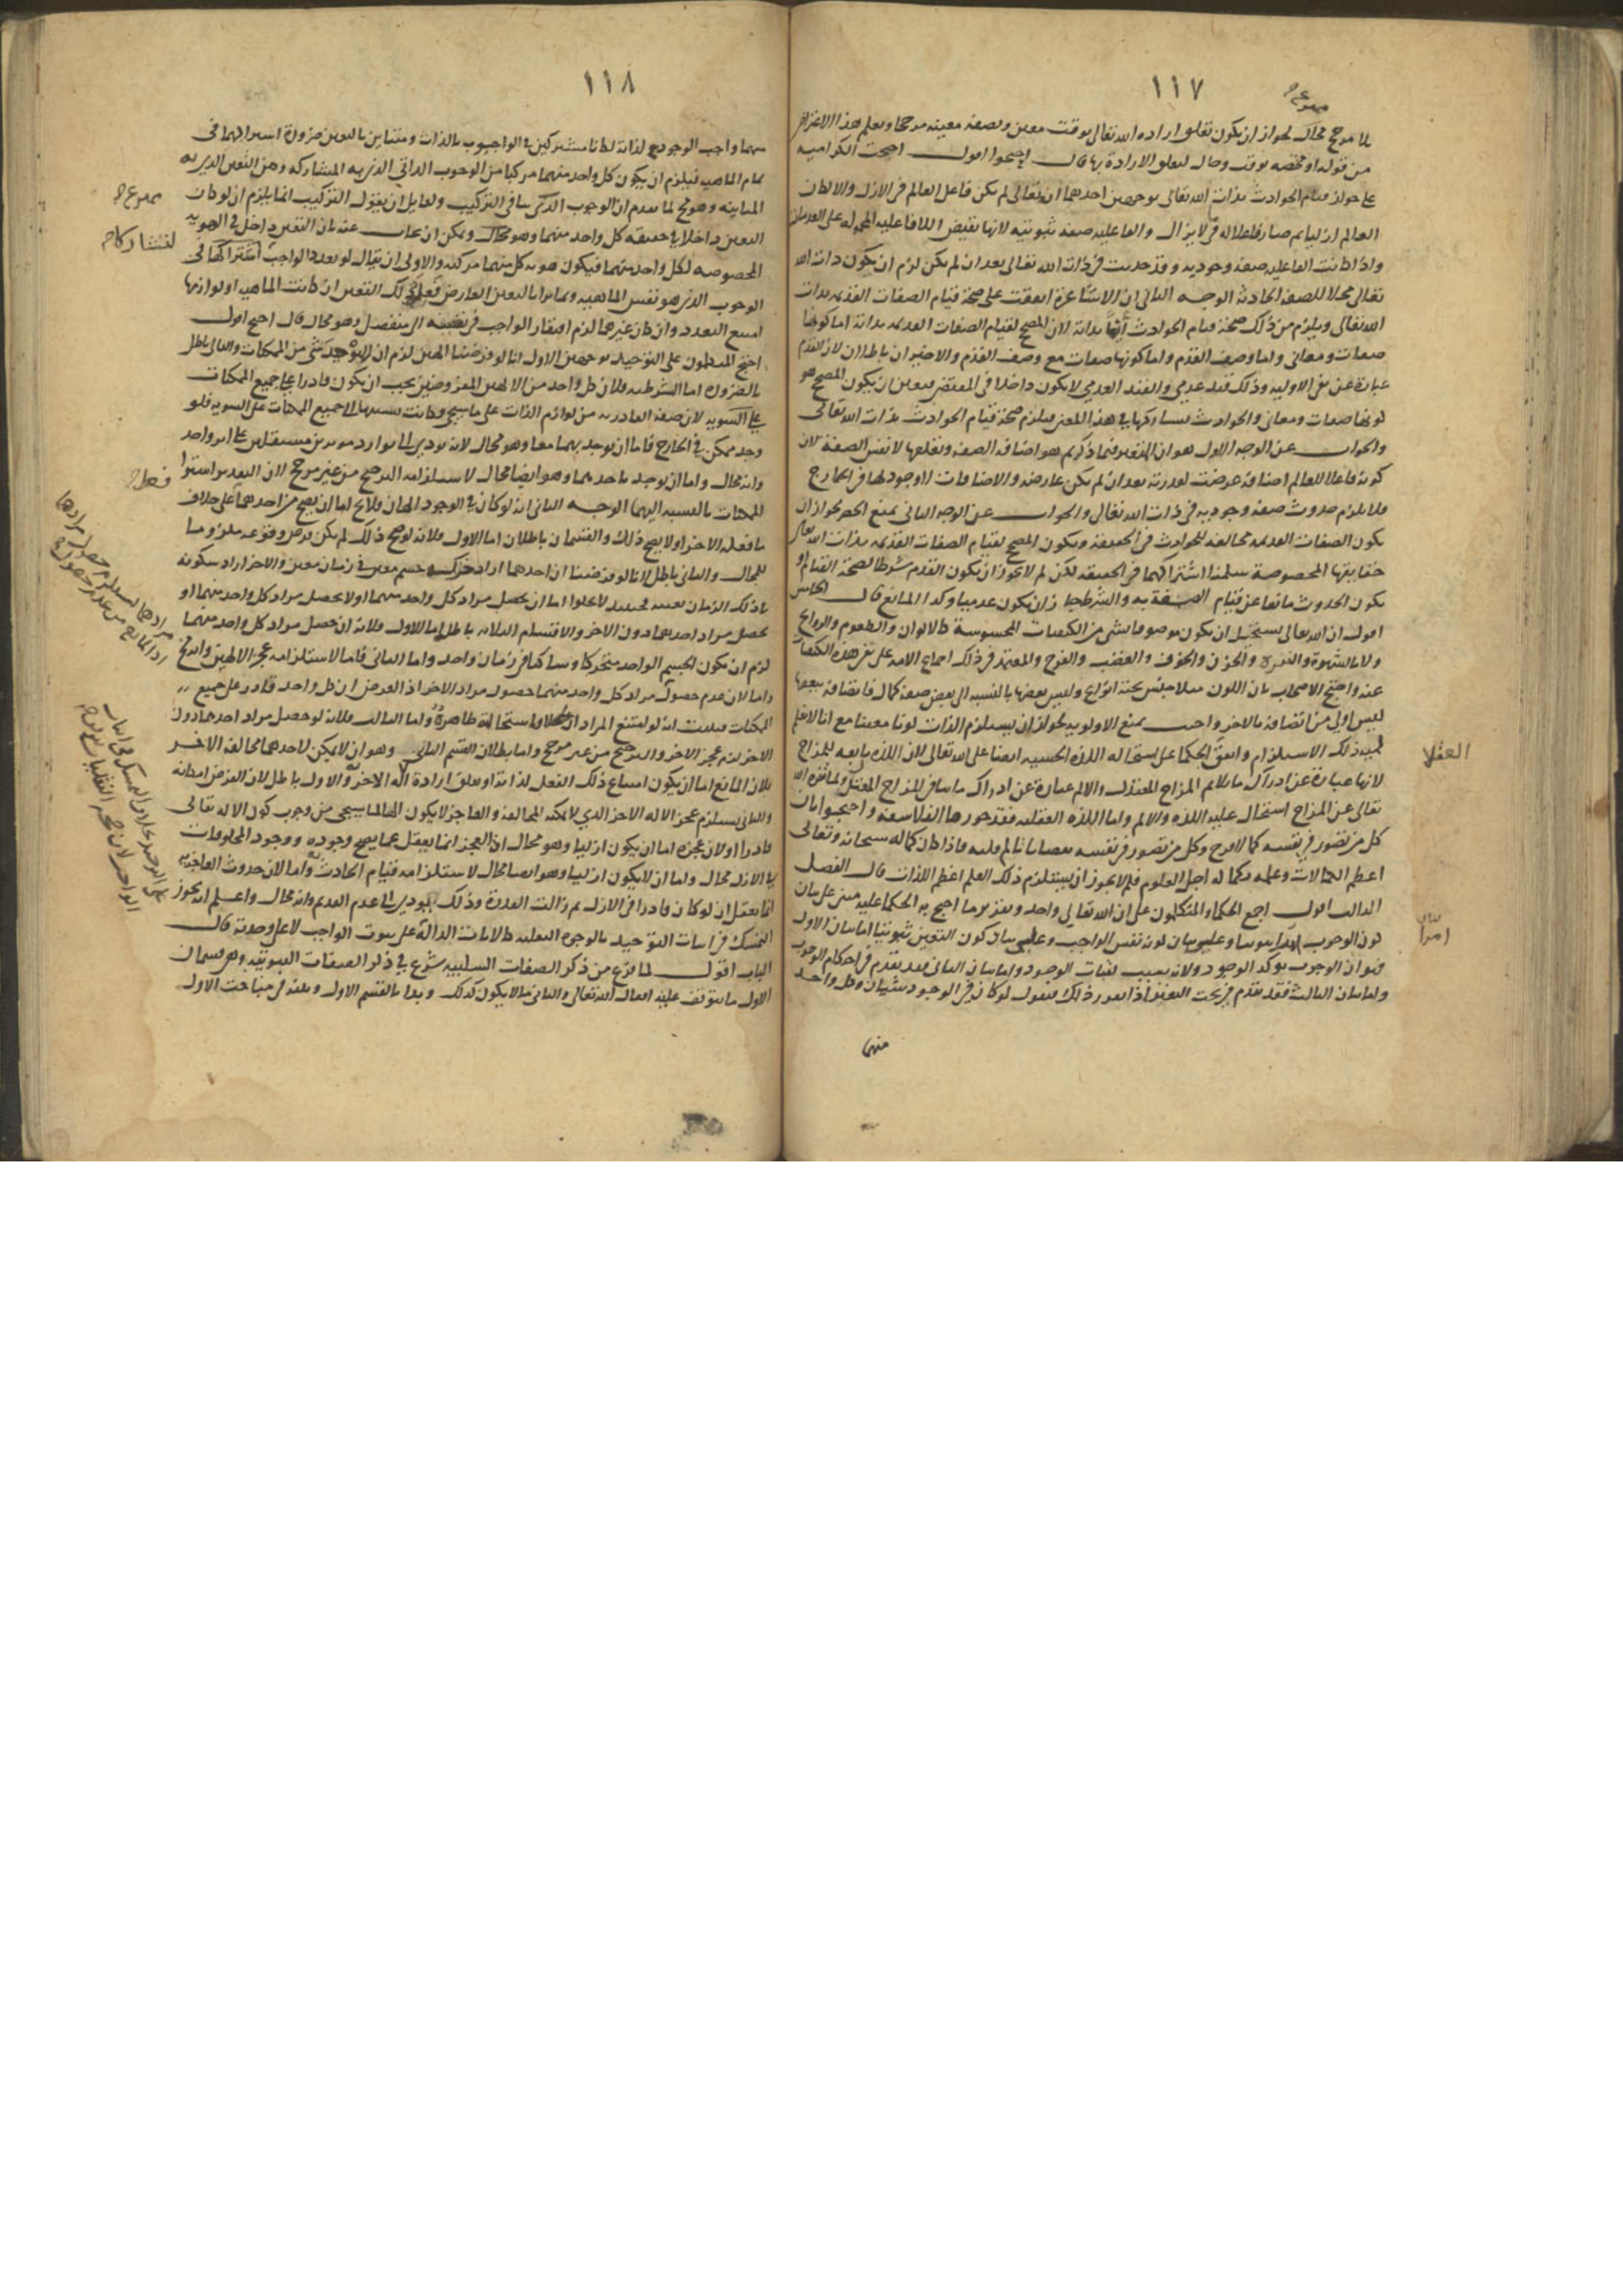 ١١٧
بلا مرجح محال لجواز ان يكون تعلق ارادة الله تعالى بوقت معين وبصفة معينة مرجحا ويعلم هذا الاعتراض
من قوله او مخصصه بوقت وحال لتعلق الارادة بها قال احتجوا اقول احتجت الكرامية
على جواز قيام الحوادث بذات الله تعالى بوجهين احدهما انه تعالى لم يكن فاعل العالم في الازل والا لكان
العالم ازليا ثم صار فاعلا له في لا يزال والفاعلية صفة ثبوتية لانها نقيض اللافاعلية المحمولة على العدم
واذا كانت الفاعلية صفة وجودية وقد حدثت في ذات الله تعالى بعد ان لم يكن لزم ان يكون ذات الله
تعالى محلا للصفة الحادثة الوجه الثاني ان الاشاعرة اتفقت على صحة قيام الصفات القديمة بذات
الله تعالى ويلزم من ذلك صحة قيام الحوادث ايضا بذاته لان المصحح لقيام الصفات القديمة بذاته اما كونها
صفات ومعاني واما وصف القدم واما كونها صفات مع وصف القدم والاخيران باطلان لان القدم
عبارة عن نفي الاولية وذلك قيد عدمي والقيد العدمي لا يكون داخلا في المقتضي فتعين ان يكون المصحح هو
كونها صفات ومعاني والحوادث تشاركها في هذا المعنى فيلزم صحة قيام الحوادث بذات الله تعالى
والجواب عن الوجه الاول هو ان المتغير فيما ذكرتم هو اضافة الصفة وتعلقها لا نفس الصفة لان
كونه فاعلا للعالم اضافة عرضت لقدرته بعد ان لم يكن عارضة والاضافات لا وجود لها في الخارج
فلا يلزم حدوث صفة وجودية في ذات الله تعالى والجواب عن الوجه الثاني بمنع الحصر لجواز ان
يكون الصفات القديمة مخالفة للحوادث في الحقيقة ويكون المصحح لقيام الصفات القديمة بذات الله تعالى
حقايقها المخصوصة سلمنا اشتراكهما في الحقيقة لكن لم لا يجوز ان يكون القدم شرطا لصحة القيام او
يكون الحدوث مانعا عن قيام الصفة به والشرط جاز ان يكون عدميا وكذا المانع قال الخامس
اقول ان الله تعالى يستحيل ان يكون موصوفا بشي من الكيفيات المحسوسة كالالوان والطعوم والروايح
ولا بالشهوة والنفرة والحزن والخوف والغضب والفرح والمعتمد في ذلك اجماع الامة على نفي هذه الكيفيات
عنه واحتج الاصحاب بان اللون مثلا جنس تحته انواع وليس بعضها بالنسبة الى بعض صفة كمال فاتصافه ببعضها
ليس اولى من اتصافه بالاخر واجيب بمنع الاولوية لجواز ان يستلزم الذات لونا معينا مع انا لا نعلم
لمية ذلك الاستلزام واتفق الحكما على استحالة اللذة الحسية ايضا على الله تعالى لان اللذة تابعة للمزاج
لانها عبارة عن ادراك ما يلايم المزاج المعتدل والالم عبارة عن ادراك ما ينافي المزاج المعتدل ولما تنزه الله
تعالى عن المزاج استحال عليه اللذة والالم واما اللذة العقلية فقد جوزها الفلاسفة واحتجوا بان
كل من تصور في نفسه كمالا فرح وكل من تصور في نفسه نقصانا تالم قلبه فاذا كان كماله سبحانه وتعالى
اعظم الكمالات وعلمه بكماله اجل العلوم فلم لا يجوز ان يستلزم ذلك العلم اعظم اللذات قال الفصل
الثالث اقول اجمع الحكما والمتكلمون على ان الله تعالى واحد وتقرير ما احتج به الحكما عليه مبني على بيان
كون الوجوب امرا ثبوتيا وعلى بيان كونه نفس الواجب وعلى بيان كون التعين ثبوتيا اما بيان الاول
فهو ان الوجوب يوكد الوجود ولانه يسبب لثبات الوجود واما بيان الثاني فقد تقدم في احكام الوجوب
واما بيان الثالث فقد تقدم في بحث التعين اذا تقرر ذلك فنقول لو كان في الوجود شيئان وكل واحد
منهما
العقلا
امرا
١١٨
منهما واجب الوجود لذاته لكانا مشتركين في الواجب بالذات ومتباين بالتعين ضرورة اشتراكهما في
تمام الماهية فيلزم ان يكون كل واحد منهما مركبا من الوجوب الذاتي الذي به المشاركة ومن التعين الذي به
المباينة وهو مح لما تقدم ان الوجوب الذاتي ينافي التركيب ولقايل ان يقول التركيب انما يلزم ان لو كان
التعين داخلا في حقيقة كل واحد منهما وهو محال ويمكن ان يجاب عنه بان التعين داخل في الهوية
المخصوصة لكل واحد منهما فيكون هوية كل منهما مركبة والاولى ان يقال لو تعدد الواجب اشتراكهما في
الوجوب الذي هو نفس الماهية وتمايزا بالتعين العارض فعلة ذلك التعين ان كانت الماهية او لوازمها
امتنع التعدد وان كان غيرهما لزم افتقار الواجب في تعينه الى منفصل وهو محال قال احتج اقول
احتج المتكلمون على التوحيد بوجهين الاول انا لو فرضنا الهين لزم ان لا يوجد شي من الممكنات والتالي باطل
بالضرورة اما الشرطية فلان كل واحد من الالهين المفروضين يجب ان يكون قادرا على جميع الممكنات
على السوية لان صفة القادرية من لوازم الذات على ما سيجي وكانت نسبتها الى جميع الممكنات على السوية فلو
وجد ممكن في الخارج فاما ان يوجد بهما معا وهو محال لانه يودي الى توارد موثرين مستقلين على اثر واحد
وانه محال واما ان يوجد باحدهما وهو ايضا محال لاستلزامه الترجيح من غير مرجح لان التقدير استوا
الممكنات بالنسبة اليهما الوجه الثاني انه لو كان في الوجود الهان فلا يخ اما ان يصح من احدهما على خلاف
ما فعله الاخر او لا يصح ذلك والقسمان باطلان اما الاول فلانه لو صح ذلك لم يكن فرض وقوعه ملزوما
للمحال والتالي باطل لانا لو فرضنا ان احدهما اراد حركة جسم معين في زمان معين والاخر اراد سكونه
في ذلك الزمان بعينه فحينئذ لا يخلوا اما ان يحصل مراد كل واحد منهما او لا يحصل مراد كل واحد منهما او
يحصل مراد احدهما دون الاخر والاقسام الثلاثة باطلة اما الاول فلانه ان حصل مراد كل واحد منهما
لزم ان يكون الجسم الواحد متحركا وساكنا في زمان واحد واما الثاني فاما لاستلزامه عجز الالهين وانه مح
واما لان عدم حصول مراد كل واحد منهما حصول مراد الاخر اذ الفرض ان كل واحد قادر على جميع
الممكنات فثبت انه لو امتنع المرادان واستحالته ظاهرة واما الثالث فلانه لو حصل مراد احدهما دون
الاخر لزم عجز الاخر والترجيح من غير مرجح واما بطلان القسم الثاني وهو ان لا يمكن لاحدهما مخالفة الاخر
فلان المانع اما ان يكون امتناع ذلك الفعل لذاته او تعلق ارادة اله الاخر والاول باطل لان الفرض امكانه
والثاني يستلزم عجز الاله الاخر الذي لا يمكنه المخالفة والعاجز لا يكون الها لما سيجي من وجوب كون الاله تعالى
قادرا ولان عجزه اما ان يكون ازليا وهو محال اذ العجز انما يعقل عما يصح وجوده ووجود المخلوقات
في الازل محال واما ان لا يكون ازليا وهو ايضا محال لاستلزامه قيام الحادث به واما لان حدوث العاجزية
انما يعقل ان لو كان قادرا في الازل ثم زالت القدرة وذلك يودي الى عدم القديم وانه محال واعلم انه يجوز
التمسك في اثبات التوحيد بالوجوه النقلية كالايات الدالة على ثبوت الواجب لا على وحدته قال
الباب اقول لما فرغ من ذكر الصفات السلبية شرع في ذكر الصفات الثبوتية وهي قسمان
الاول ما يتوقف عليه افعال الله تعالى والثاني ما لا يكون كذلك وبدا بالقسم الاول وبدا في مباحث الاول
ممنوع
لتشاركا